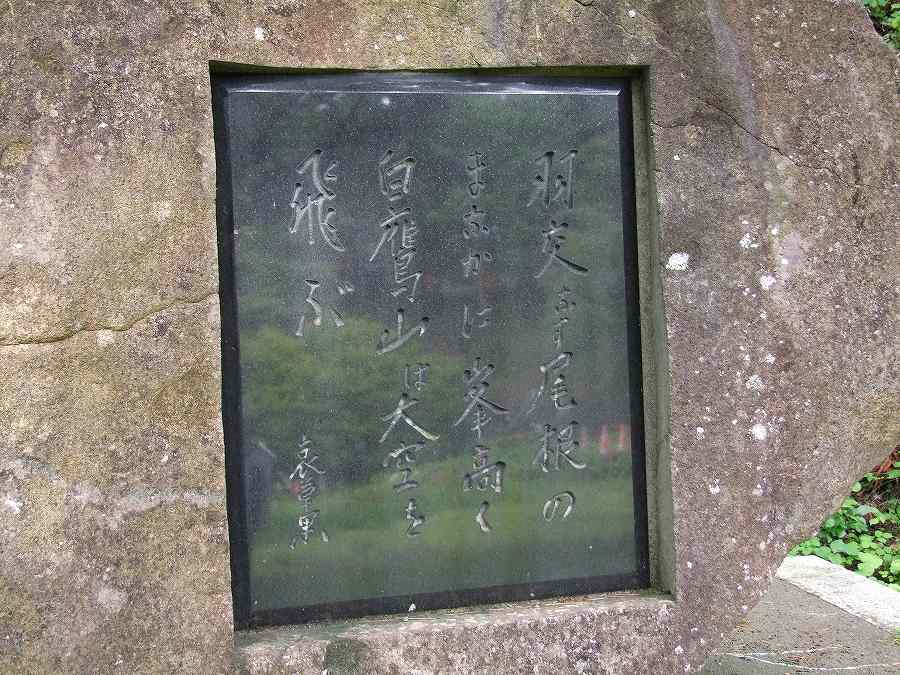 羽交なす尾根の
まなかに峯高く
白鷹山は大空を
飛ぶ
哀草果